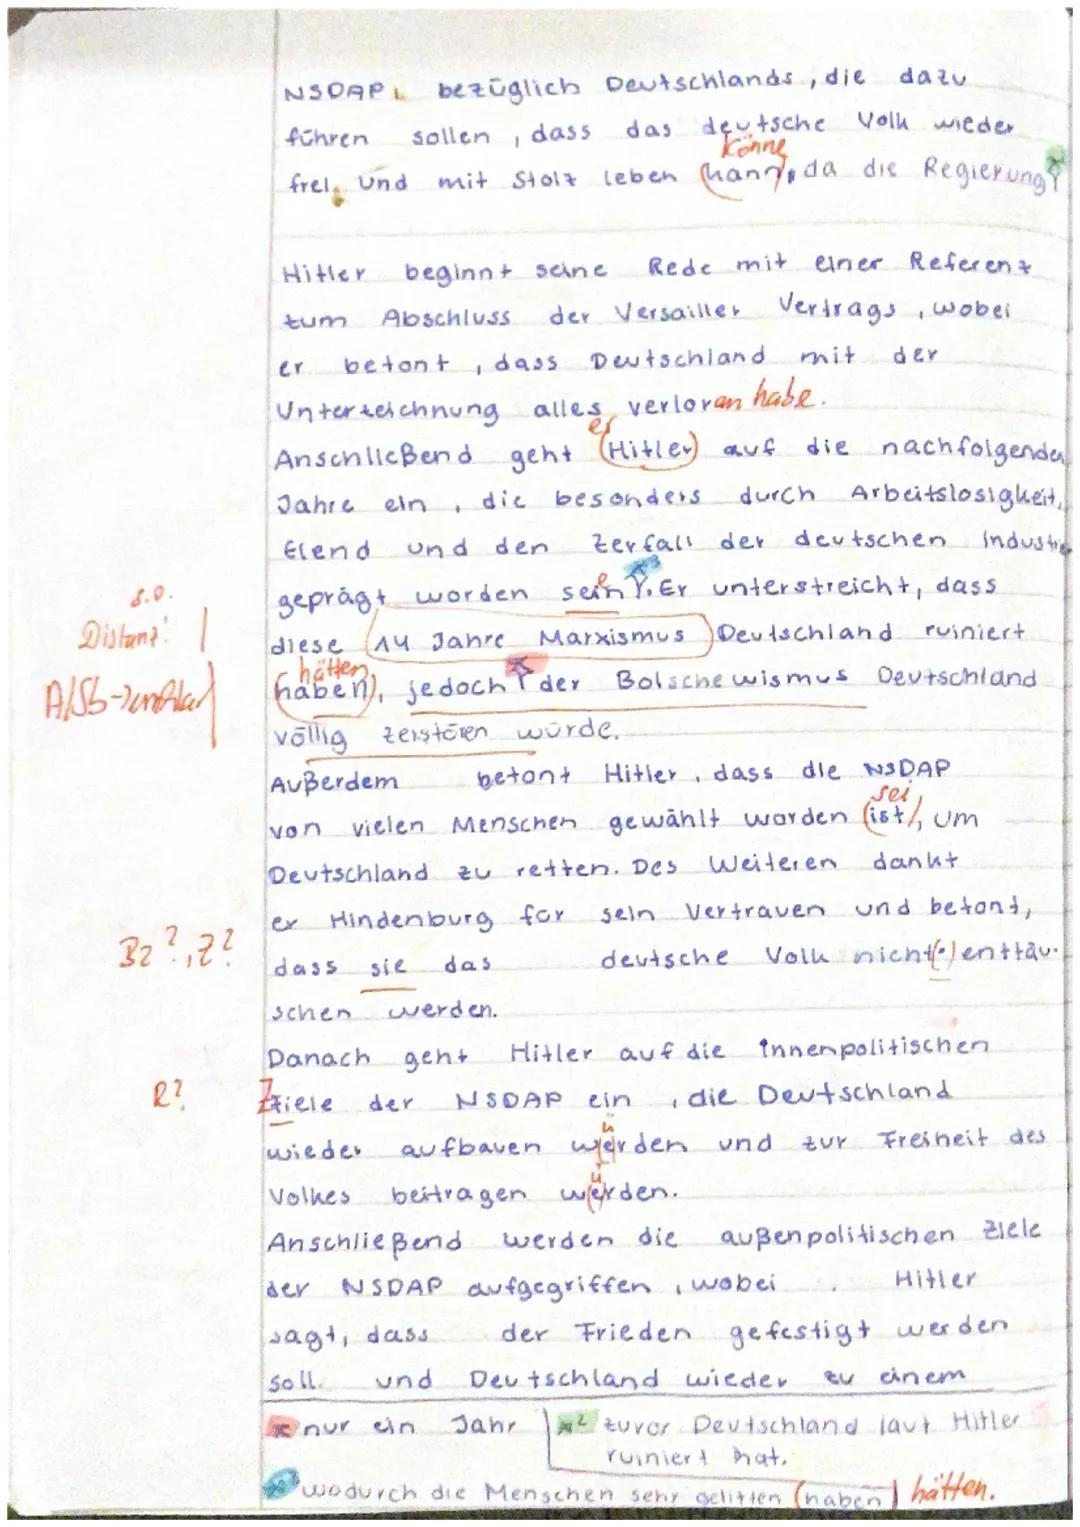 NSDAP, bezüglich Deutschlands, die dazu
führen sollen, dass das deutsche Volk wieder
könne
frei, und mit Stolz leben (kann), da die Regierung
Hitler beginnt seine Rede mit einer Referenz
zum Abschluss der Versailler Vertrags, wobei
er betont, dass Deutschland mit der
Unterzeichnung alles verloren habe.
er
Anschließend geht (Hitler) auf die nachfolgenden
Jahre ein, die besonders durch Arbeitslosigkeit,
Elend und den Zerfall der deutschen Industrie
s.o.
geprägt worden sein *3. Er unterstreicht, dass
Distanz!
diese 14 Jahre Marxismus Deutschland ruiniert
hätten
(haben), jedoch * der Bolschewismus Deutschland
völlig zerstören würde.
Außerdem betont Hitler, dass die NSDAP
sei
von vielen Menschen gewählt worden (ist), um
Deutschland zu retten. Des Weiteren dankt
er Hindenburg für sein Vertrauen und betont,
Bz?, Z?
dass sie das deutsche Volk nicht(-) enttäu-
schen werden.
Danach geht Hitler auf die innenpolitischen
R?
Ziele der NSDAP ein, die Deutschland
ü
wieder aufbauen werden und zur Freiheit des
ü
Volkes beitragen werden.
Anschließend werden die außenpolitischen Ziele
der NSDAP aufgegriffen, wobei Hitler
sagt, dass der Frieden gefestigt werden
soll und Deutschland wieder zu einem
* nur ein Jahr
*2 zuvor Deutschland laut Hitler
ruiniert hat.
*3 wodurch die Menschen sehr gelitten (haben) hätten.